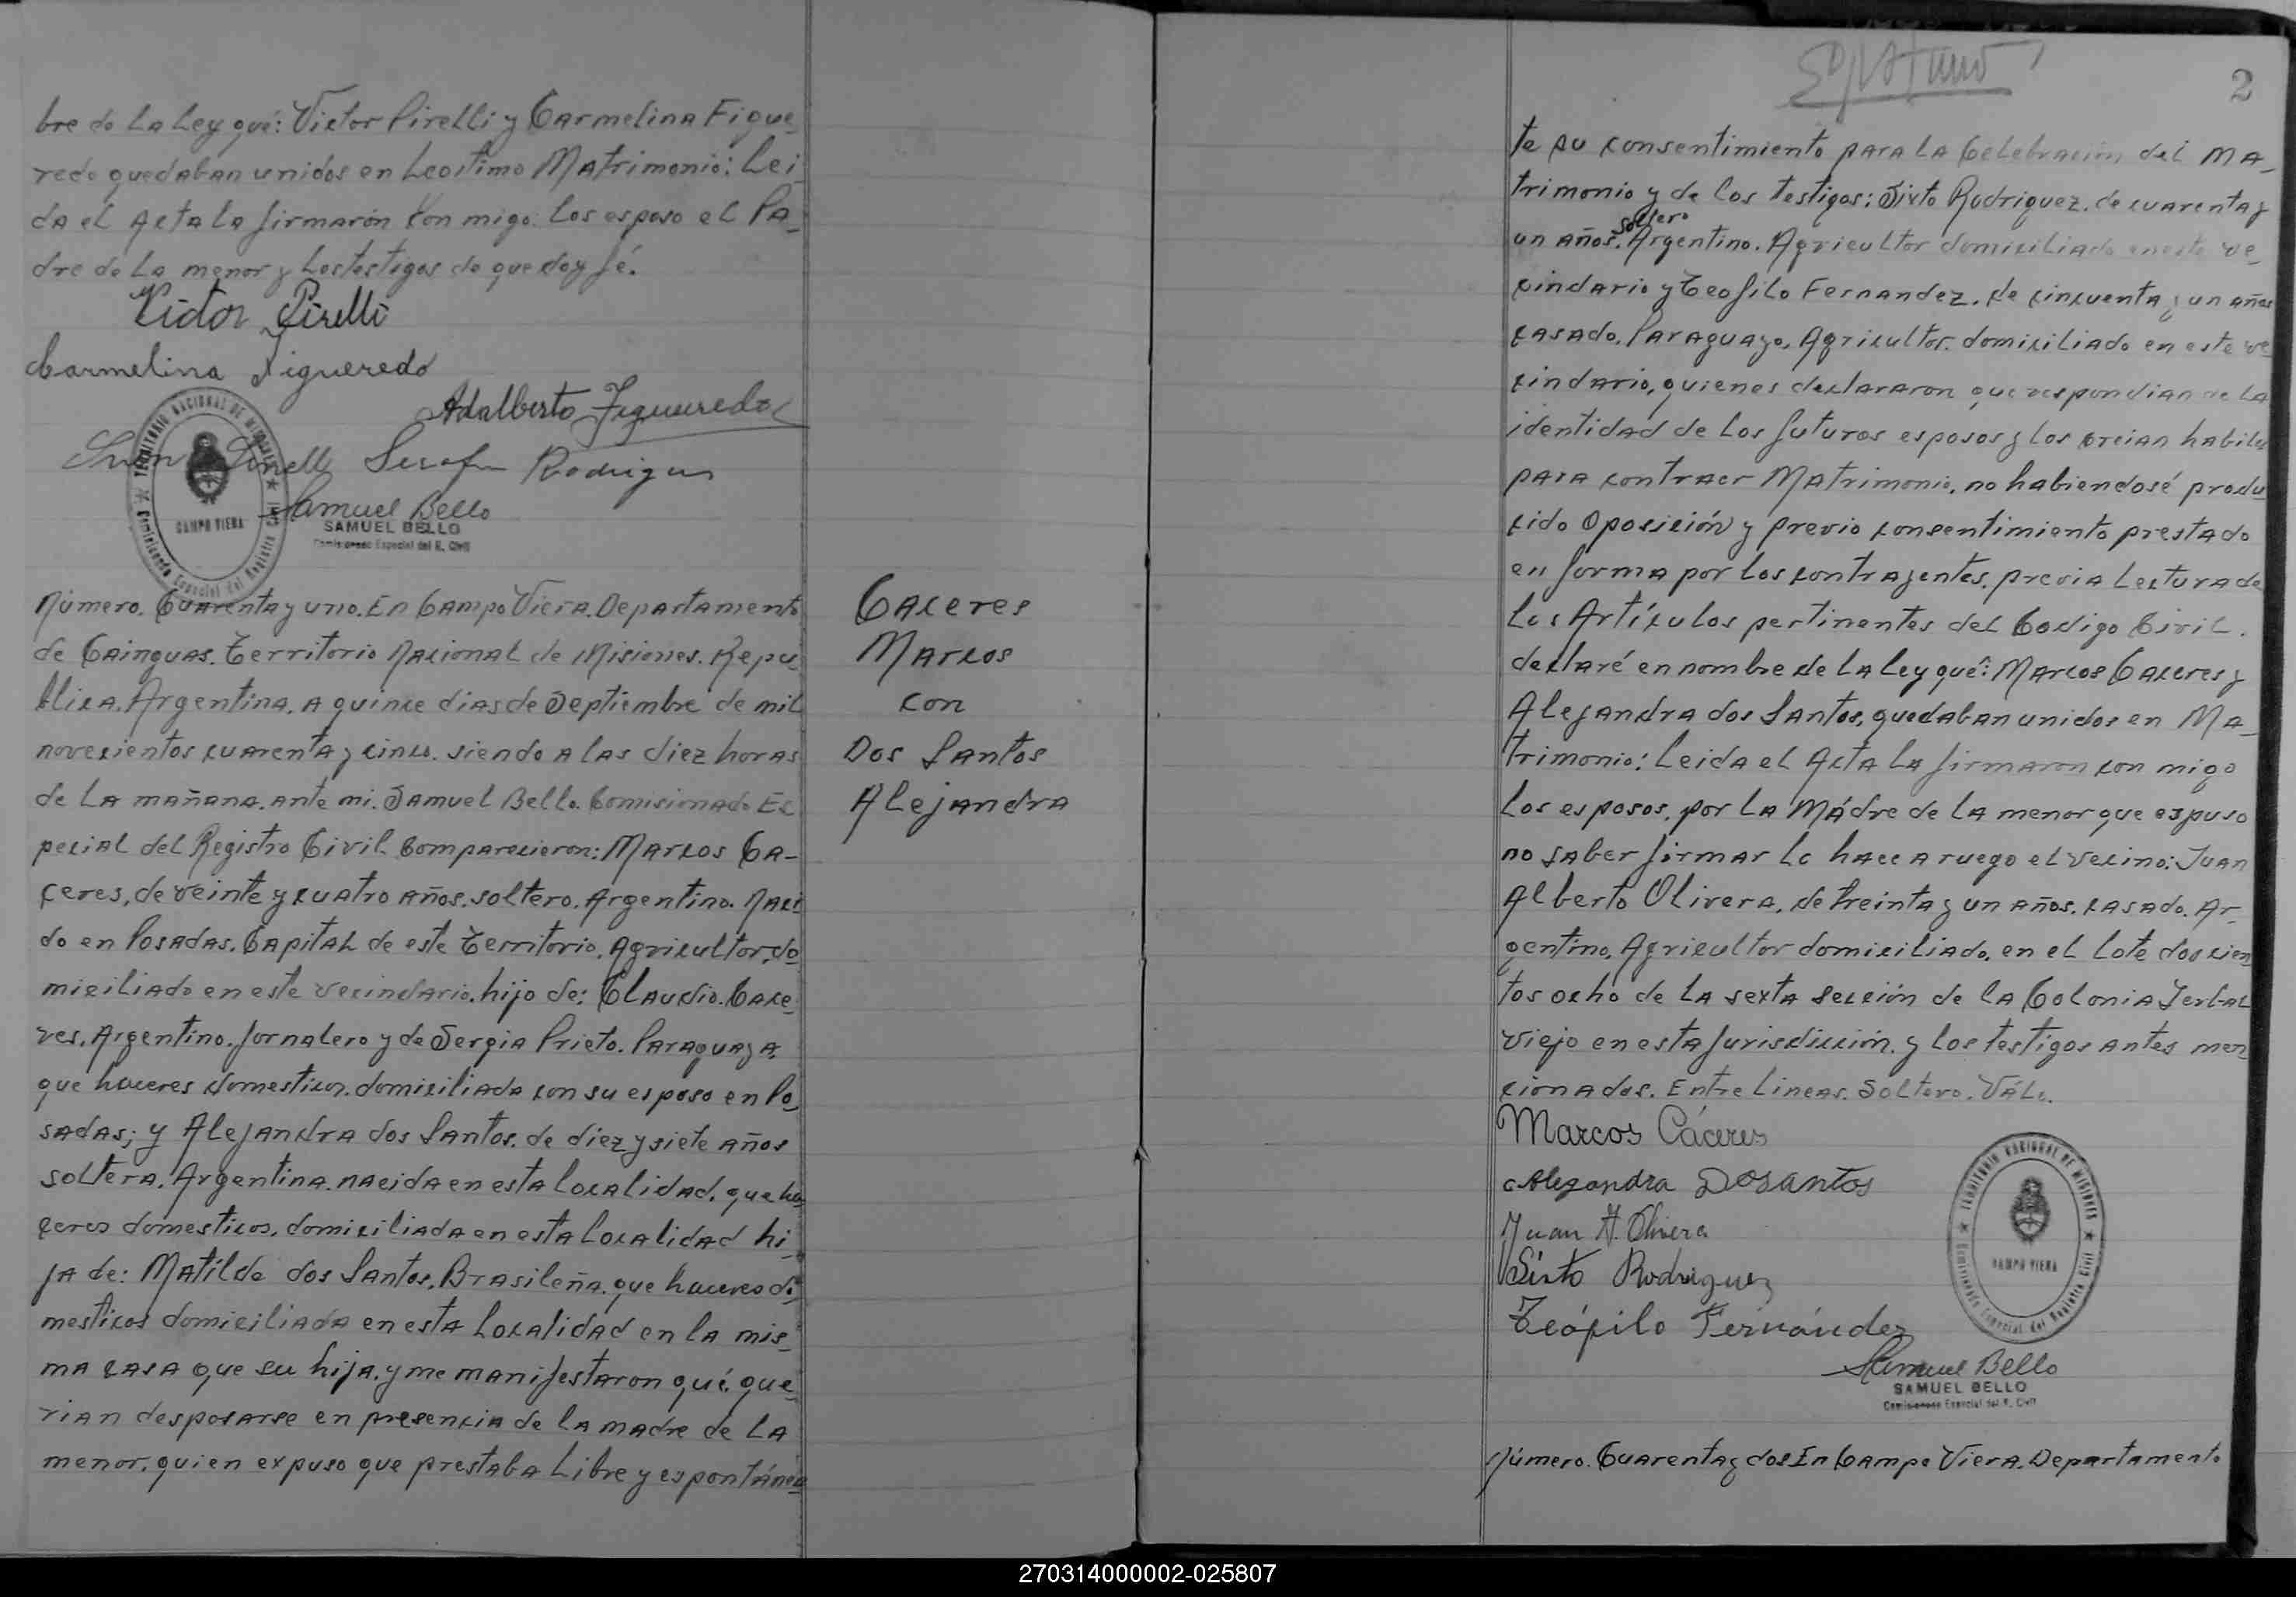 bre de la Ley qué: Victor Pirelli y Carmelina Figue_
redo quedaban unidos en Legitimo Matrimonio: Lei_
da el Acta la firmarón con migo. los esposo el Pa_
dre de la menor y los testigos de que doy fé.
Victor Pirelli
Carmelina Figueredo
Adalberto Figueredo
Serafin Rodrigues
TERRITORIO NACIONAL DE MISIONES
CAMPO VIERA
Comisionado Especial del Registro Civil
Samuel Bello
SAMUEL BELLO
Comisionado Especial del R. Civil
Número. Cuarenta y uno. En Campo Viera. Departamento
de Cainguas. Territorio Nacional de Misiones. Repú
blica. Argentina. a quince dias de Septiembre de mil
novecientos cuarenta y cinco. siendo a las diez horas
de la mañana. ante mi. Samuel Bello. Comisionado Es
pecial del Registro Civil. Comparecieron: Marcos Ca-
ceres, de veinte y cuatro años. soltero. Argentino. Naci
do en Posadas. Capital de este Territorio. Agricultor, do
miciliado en este vecindario. hijo de: Claudio. Cace_
res. Argentino. Jornalero y de Sergia Prieto. Paraguaya.
que haceres domesticos. domiciliada con su esposo en Po_
sadas; y Alejandra dos Santos. de diez y siete años
soltera. Argentina. nacida en esta localidad. que ha_
ceres domesticos. domiciliada en esta localidad hi_
ja de: Matilde dos Santos. Brasileña. que haceres do_
mesticos domiciliada en esta localidad en la mis_
ma casa que su hija. y me manifestaron qué. que_
rian desposarse en presencia de la madre de la
menor. quien expuso que prestaba libre y espontánea
Caceres
Marcos
con
Dos Santos
Alejandra
2
te su consentimiento para la Celebración del Ma_
trimonio y de los testigos: Sixto Rodriguez. de cuarenta y
soltero
un años. Argentino. Agricultor domiciliado en este ve_
cindario y Teofilo Fernandez. de cincuenta y un años
casado. Paraguayo. Agricultor. domiciliado en este ve
cindario, quienes declararon que respondian de la
identidad de los futuros esposos y los creian habiles
para contraer Matrimonio. no habiendosé produ
cido oposición y previo consentimiento prestado
en forma por los contrayentes. previa lectura de
los Artículos pertinentes del Codigo Civil.
declaré en nombre de la Ley qué: Marcos Caceres y
Alejandra dos Santos, quedaban unidos en Ma_
trimonio: Leida el Acta la firmaron con migo
los esposos, por la Mádre de la menor que expuso
no saber firmar lo hace a ruego el vecino: Juan
Alberto Olivera, de treinta y un años. casado. Ar-
gentino, Agricultor domiciliado. en el lote doscien
tos ocho de la sexta sección de la Colonia Yerbal
viejo en esta jurisdicción. y los testigos antes men
cionados. Entre lineas. Soltero. Vále.
Marcos Cáceres
Alejandra Dosantos
Juan A. Olivera
Sixto Rodriguez
Teófilo Fernández
TERRITORIO NACIONAL DE MISIONES
CAMPO VIERA
Comisionado Especial del Registro Civil
Samuel Bello
SAMUEL BELLO
Comisionado Especial del R. Civil
Número. Cuarenta y dos En Campo Viera. Departamento
270314000002-025807